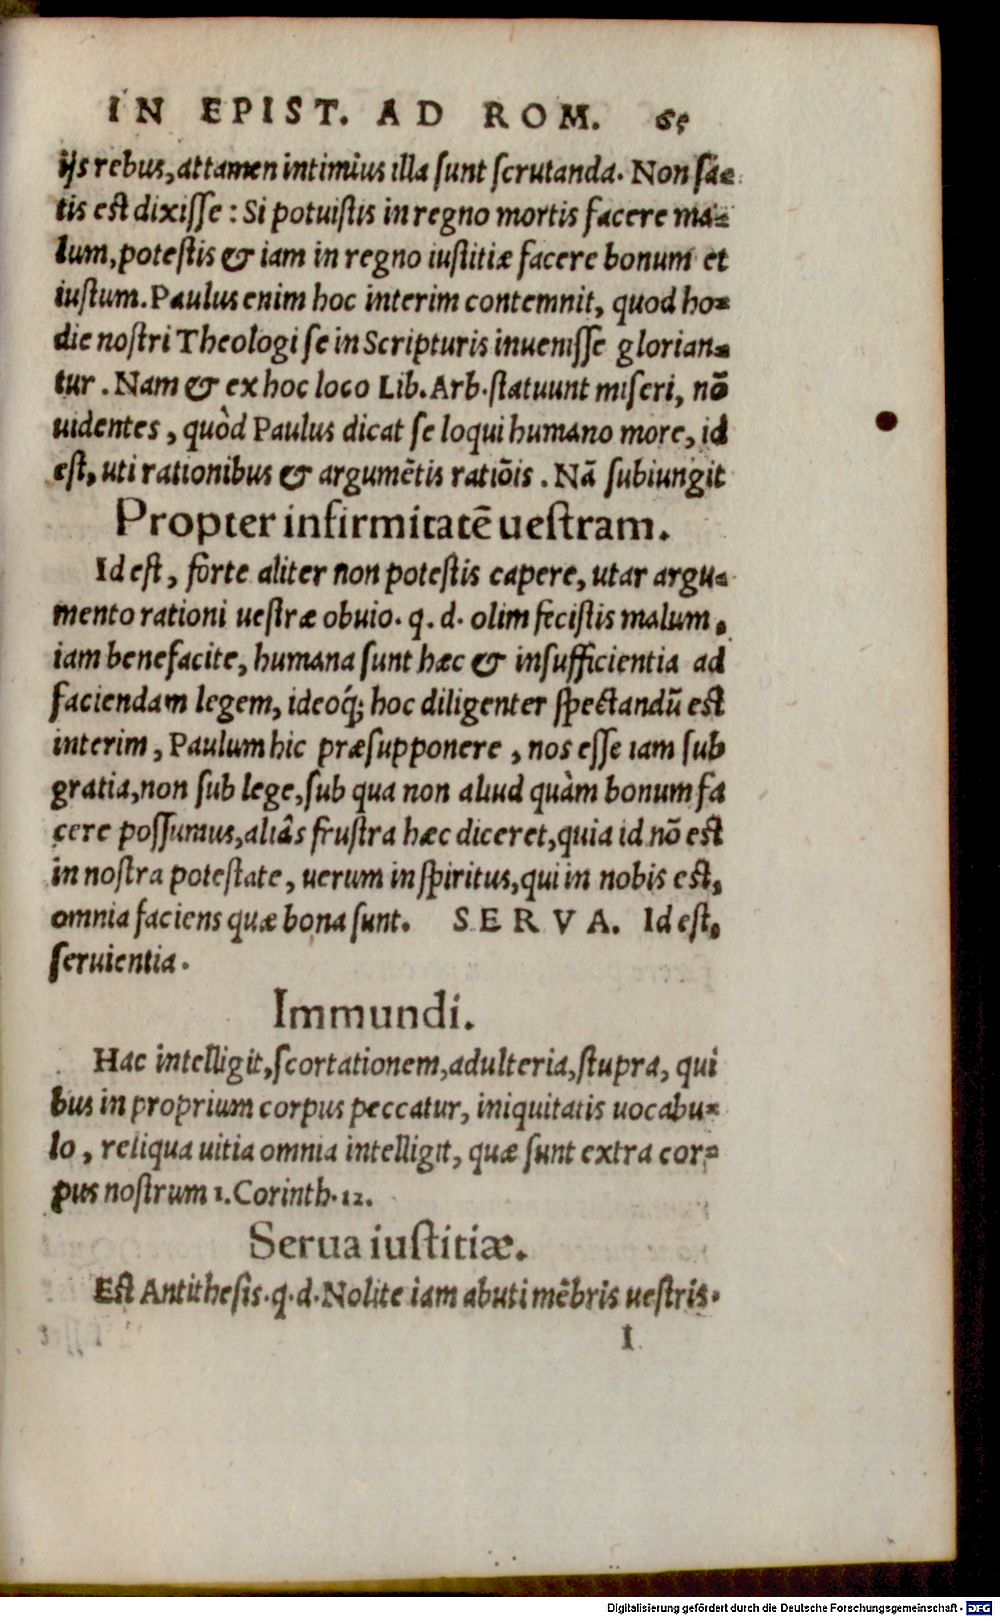 IN EPIST. AD ROM. 65
ijs rebus, attamen intimius illa sunt scrutanda. Non sa-
tis est dixisse: Si potuistis in regno mortis facere ma-
lum, potestis & iam in regno iustitiæ facere bonum et
iustum. Paulus enim hoc interim contemnit, quod ho-
die nostri Theologi se in Scripturis inuenisse glorian-
tur. Nam & ex hoc loco Lib. Arb. statuunt miseri, nõ
uidentes, quòd Paulus dicat se loqui humano more, id
est, uti rationibus & argumẽtis ratiõis. Nã subiungit
Propter infirmitatẽ uestram.
Id est, forte aliter non potestis capere, utar argu-
mento rationi uestræ obuio. q. d. olim fecistis malum,
iam benefacite, humana sunt hæc & insufficientia ad
faciendam legem, ideoq́; hoc diligenter spectandũ est
interim, Paulum hic præsupponere, nos esse iam sub
gratia, non sub lege, sub qua non aliud quàm bonum fa
cere possumus, aliâs frustra hæc diceret, quia id nõ est
in nostra potestate, uerum in spiritus, qui in nobis est,
omnia faciens quæ bona sunt. SERVA. Id est,
seruientia.
Immundi.
Hac intelligit, scortationem, adulteria, stupra, qui
bus in proprium corpus peccatur, iniquitatis uocabu-
lo, reliqua uitia omnia intelligit, quæ sunt extra cor-
pus nostrum 1. Corinth. 12.
Serua iustitiæ.
Est Antithesis. q. d. Nolite iam abuti mẽbris uestris.
I
Digitalisierung gefördert durch die Deutsche Forschungsgemeinschaft - DFG